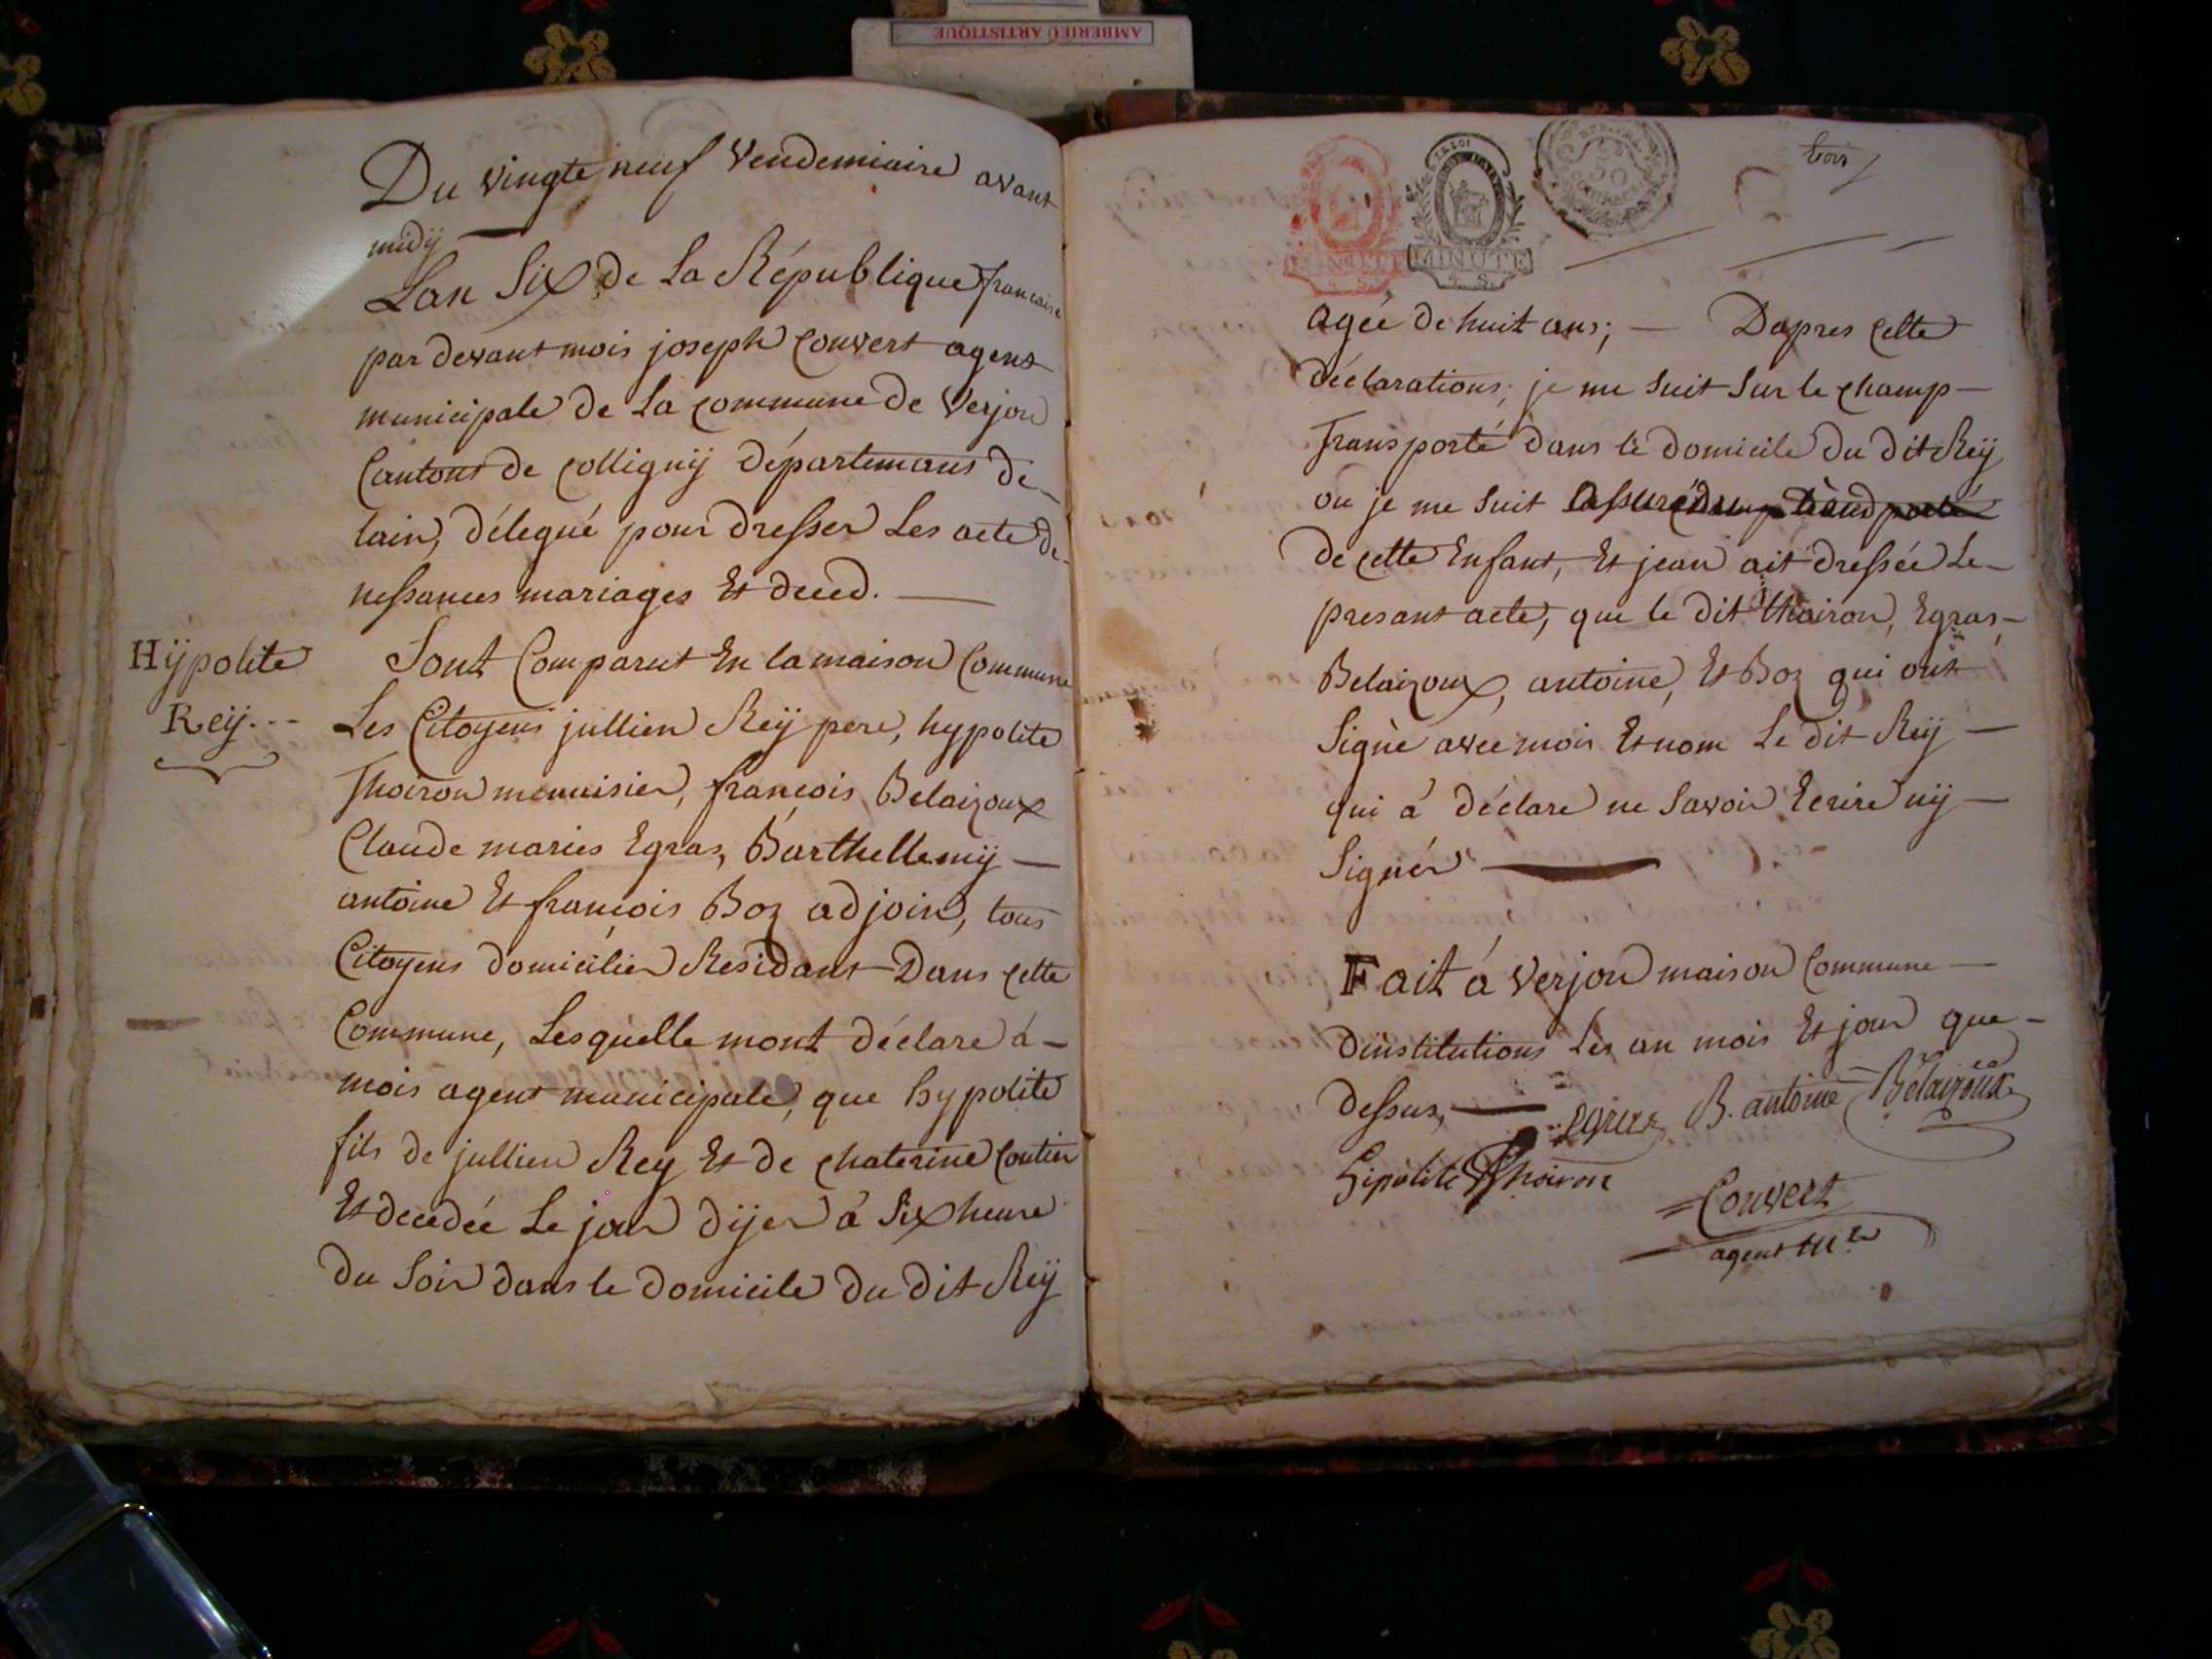 AMBERIEU ARTISTIQUE
Du vingte neuf Vendemiaire avant
midÿ
Lan Six de La République francaise
par devant mois joseph Couvert agent
municipale de La commune de Verjon
Cantons de Colligniÿ Départemans de
lain, délegué pour dresser Les acte de
nessances mariages Et deced.
Hÿpolite
Reÿ...
Sont Comparut En la maison Commune
Les Citoyens jullien Reÿ pere, hypolite
Thoiron menuisier, francois Belaizoux
Claude maries Egras, Barthellemiÿ
antoine Et francois Boz adjoin, tous
Citoyens domicilier Residant Dans cette
Commune, Lesquelle mont déclare à
mois agent municipale, que hypolite
fils de jullien Rey Et de Chaterine Coutier
Et decedée Le jour dÿer à Six heure
Du Soir dans le Domicile Du Dit Reÿ
LA LOI
MINUTE
4 S.
MINUTE
4 S.
50
trois
agée de huit ans; Dapres Cette
déclarations, je me Suit Sur le champ
Transporté Dans le Domicile Du Dit Reÿ
ou je me Suit assuré
De cette Enfant, Et jean ait dressée Le
presant acte, que le dit thoiron, Egras
Belaizoux, antoine, Et Boz qui ont
Signè avec mois Et nom Le dit Reÿ
qui à déclare ne Savoir Ecrire nÿ
Signér
Fait à Verjon maison Commune
dinstitutions Les an mois Et jour que
dessus, egras B. antoine Bélaizoux
hipolite Thoiron
Couvert
agent mle